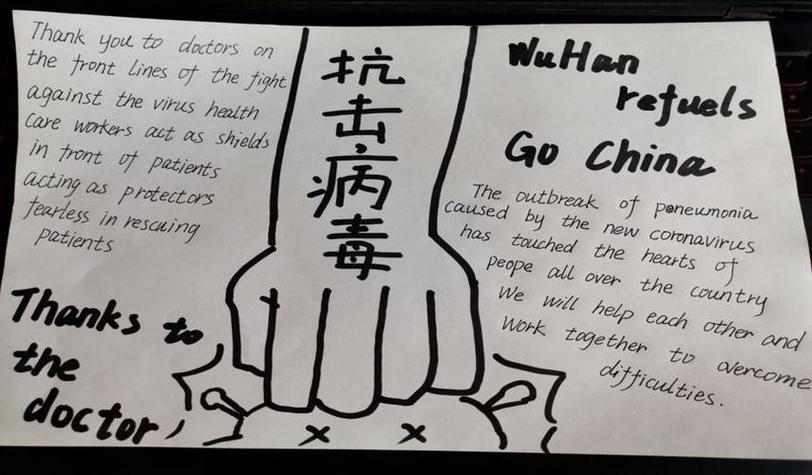 Thank you to doctors on
the front lines of the fight
against the virus health
care workers act as shields
in front of patients
acting as protectors
fearless in rescuing
patients
Thanks to
the
doctor
抗
击
病
毒
WuHan
refuels
Go China
The outbreak of poneumonia
caused by the new coronavirus
has touched the hearts of
peope all over the country
We will help each other and
work together to overcome
difficulties.